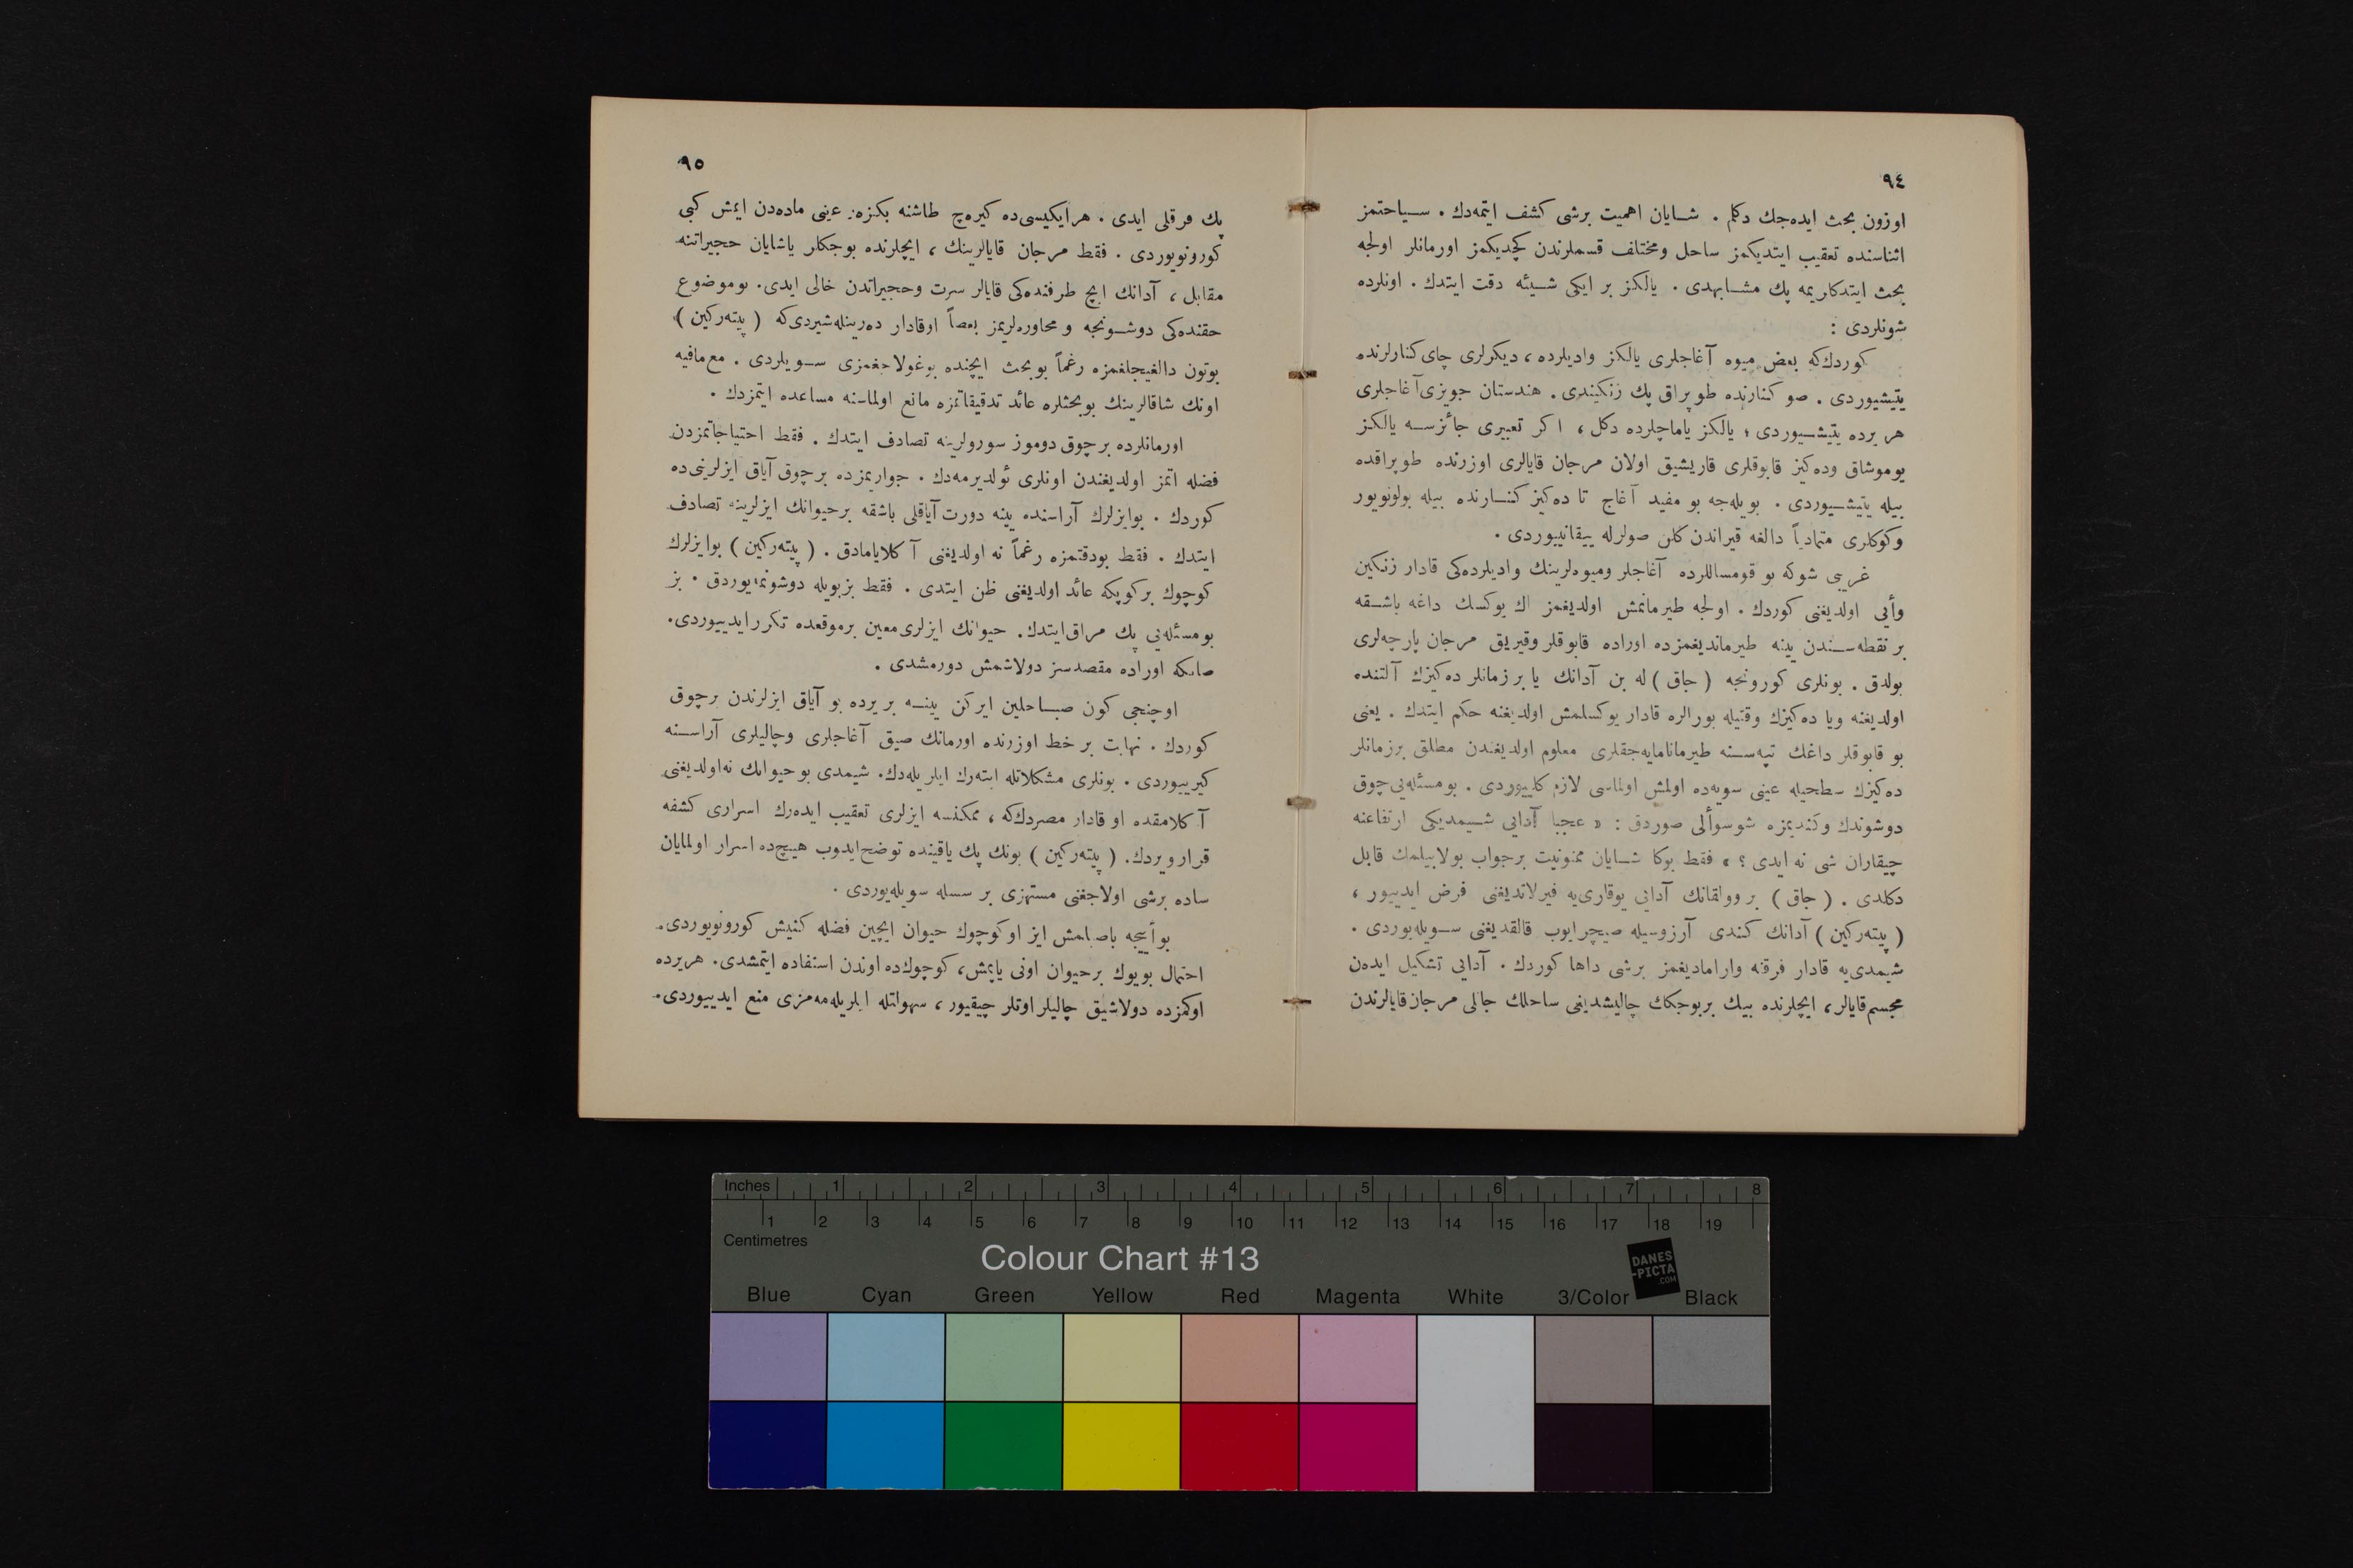 ٩٤
اوزون بحث ایده‌جك دكلم . شایان اهمیت برشی كشف ایتمه‌دك . سیاحتمز
اثناسنده تعقیب ایتدیكمز ساحل ومختلف قسملرندن كچدیكمز اورمانلر اولجه
بحث ایتدكلریمه پك مشابهدی . یالكز بر ایكی شیئه دقت ایتدك . اونلرده
شونلردی :
كوردك‌كه بعض میوه آغاجلری یالكز وادیلرده ، دیكرلری چای كنارلرنده
یتیشیوردی . صو كنارنده طوپراق پك زنكیندی . هندستان جویزی آغاجلری
هر یرده یتیشیوردی ؛ یالكز یاماچلرده دكل ، اكر تعبیری جائزسه یالكز
یوموشاق وده‌كیز قابوقلری قاریشیق اولان مرجان قایالری اوزرنده طوپراقده
بیله یتیشیوردی . بویله‌جه بو مفید آغاج تا ده‌كیز كنارنده بیله بولونویور
وكوكلری متمادیاً دالغه قیراندن كلن صولرله ییقانییوردی .
غریبی شوكه بو قومساللرده آغاجلر ومیوه‌لرینك وادیلرده‌كی قادار زنكین
وأیی اولدیغنی كوردك . اولجه طیرمانمش اولدیغمز اك یوكسك داغه باشقه
بر نقطه‌سندن ینه طیرماندیغمزده اوراده قابوقلر وقیریق مرجان پارچه‌لری
بولدق . بونلری كورونجه ( جاق ) له بن آدانك یا بر زمانلر ده‌كیزك آلتنده
اولدیغنه ویا ده‌كیزك وقتیله بورالره قادار یوكسلمش اولدیغنه حكم ایتدك . یعنی
بو قابوقلر داغك تپه‌سنه طیرمانامایه‌جقلری معلوم اولدیغندن مطلق برزمانلر
ده‌كیزك سطحیله عینی سویه‌ده اولمش اولماسی لازم كلییوردی . بومسئله‌یی چوق
دوشوندك وكندیمزه شو سوألی صوردق : « عجبا آدایی شیمدیكی ارتفاعنه
چیقاران شی نه ایدی ؟ » فقط بوكا شایان ممنونیت برجواب بولابیلمك قابل
دكلدی . ( جاق ) بر وولقانك آدایی یوقاری‌یه فیرلاتدیغنی فرض ایدییور ،
( پیته‌ركین ) آدانك كندی آرزوسیله صیچرایوب قالقدیغنی سویله‌یوردی .
شیمدی‌یه قادار فرقنه وارامادیغمز برشی داها كوردك . آدایی تشكیل ایده‌ن
مجسم قایالر ، ایچلرنده بیك بربوجكك چالیشدیغی ساحلك جانلی مرجان قایالرندن
٩٥
پك فرقلی ایدی . هرایكیسی‌ده كیره‌ج طاشنه بكزه‌ر عینی ماده‌دن ایمش كبی
كورونویوردی . فقط مرجان قایالرینك ، ایچلرنده بوجكلر یاشایان حجیراتنه
مقابل ، آدانك ایچ طرفنده‌كی قایالر سرت وحجیراتدن خالی ایدی . بوموضوع
حقنده‌كی دوشونجه و محاوره‌لریمز بعضاً اوقادار ده‌رینله‌شیردی‌كه ( پیته‌ركین )
بوتون دالغیجلغمزه رغماً بوبحث ایچنده بوغولاجغمزی سویلردی . مع‌مافیه
اونك شاقالرینك بوبحثلره عائد تدقیقاتمزه مانع اولماسنه مساعده ایتمزدك .
اورمانلرده برچوق دوموز سورولرینه تصادف ایتدك . فقط احتیاجاتمزدن
فضله اتمز اولدیغندن اونلری ئولدیرمه‌دك . جواریمزده برچوق آیاق ایزلرینی‌ده
كوردك . بوایزلرك آراسنده ینه دورت آیاقلی باشقه برحیوانك ایزلرینه تصادف
ایتدك . فقط بودقتمزه رغماً نه اولدیغنی آكلایامادق . ( پیته‌ركین ) بوایزلرك
كوچوك بر كوپكه عائد اولدیغنی ظن ایتدی . فقط بزبویله دوشونمه‌یوردق . بز
بومسئله‌یی پك مراق‌ایتدك . حیوانك ایزلری معین برموقعده تكرر ایدییوردی .
صانكه اوراده مقصدسز دولاشمش دورمشدی .
اوچنجی كون صباحلین ایركن ینه بر یرده بو آیاق ایزلرندن برچوق
كوردك . نهایت بر خط اوزرنده اورمانك صیق آغاجلری وچالیلری آراسنه
كیرییوردی . بونلری مشكلاتله ایته‌رك ایلریله‌دك . شیمدی بو حیوانك نه‌اولدیغنی
آكلامقده او قادار مصردك‌كه ، ممكنسه ایزلری تعقیب ایده‌رك اسراری كشفه
قرار ویردك . ( پیته‌ركین ) بونك پك یاقینده توضح‌ایدوب هیچ‌ده اسرار اولمایان
ساده برشی اولاجغنی مستهزی بر سسله سویله‌یوردی .
بوأییجه باصلمش ایز اوكوچوك حیوان ایچین فضله كنیش كورونویوردی .
احتمال بویوك برحیوان اونی یاپمش ، كوچوك‌ده اوندن استفاده ایتمشدی . هریرده
اوكمزده دولاشیق چالیلر اوتلر چیقیور ، سهولتله ایلریله‌مه‌مزی منع ایدییوردی .
Inches 1 2 3 4 5 6 7 8
1 2 3 4 5 6 7 8 9 10 11 12 13 14 15 16 17 18 19
Centimetres
Colour Chart #13
DANES
-PICTA
.COM
Blue Cyan Green Yellow Red Magenta White 3/Color Black